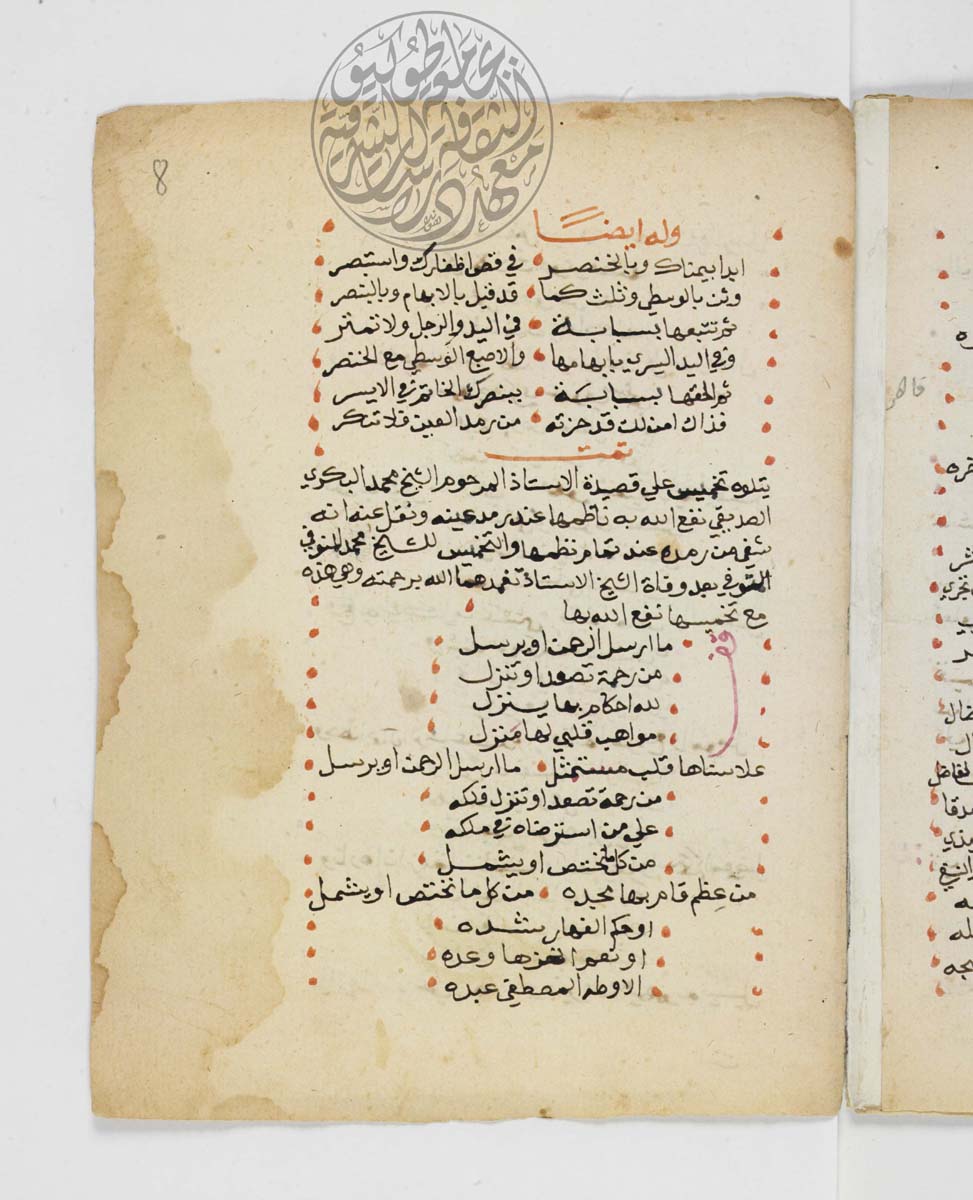 8
جامعة طوكيو
معهد دراسات الثقافة الشرقية
وله ايضا
ابدا بيمناك وبالخنصر في قص اظفارك واستبصر
وثن بالوسطي وثلث كما قد قيل بالابهام وبالبنصر
ثم تتبعها بسبابة في اليد والرجل ولا تمتر
وفي اليد اليسري بابهامها والاصبع الوسطي مع الخنصر
ثم الحقها بسبابة ببنصرك الخاتم في الايسر
فذاك امن لك قد حزته من رمد العين فلا تنكر
تمت
يتلوه تخميس علي قصيدة الاستاذ المرحوم الشيخ محمد البكري
الصديقي نفع الله به ناظمها عند رمد عينه ونقل عنه انه
شفي من رمده عند تمام نظمها والتخميس للشيخ محمد المنوفي
المتوفي بعد وفاة الشيخ الاستاذ تغمدهما الله برحمته وهي هذه
مع تخميسها نفع الله بها
ما ارسل الرحمن او يرسل
من رحمة تصعد او تنزل
لله احكام بها ينزل
مواهب قلبي لها منزل
علا سناها قلب مستمثل ما ارسل الرحمن او يرسل
من رحمة تصعد او تنزل فلكه
علي من استرضاه في ملكه
من كل ما يختص او يشمل
من عظم قام بها مجده من كل ما تختص او يشمل
او حكم القهار شده
او نعم انجزها وعده
الا وطه المصطفي عبده